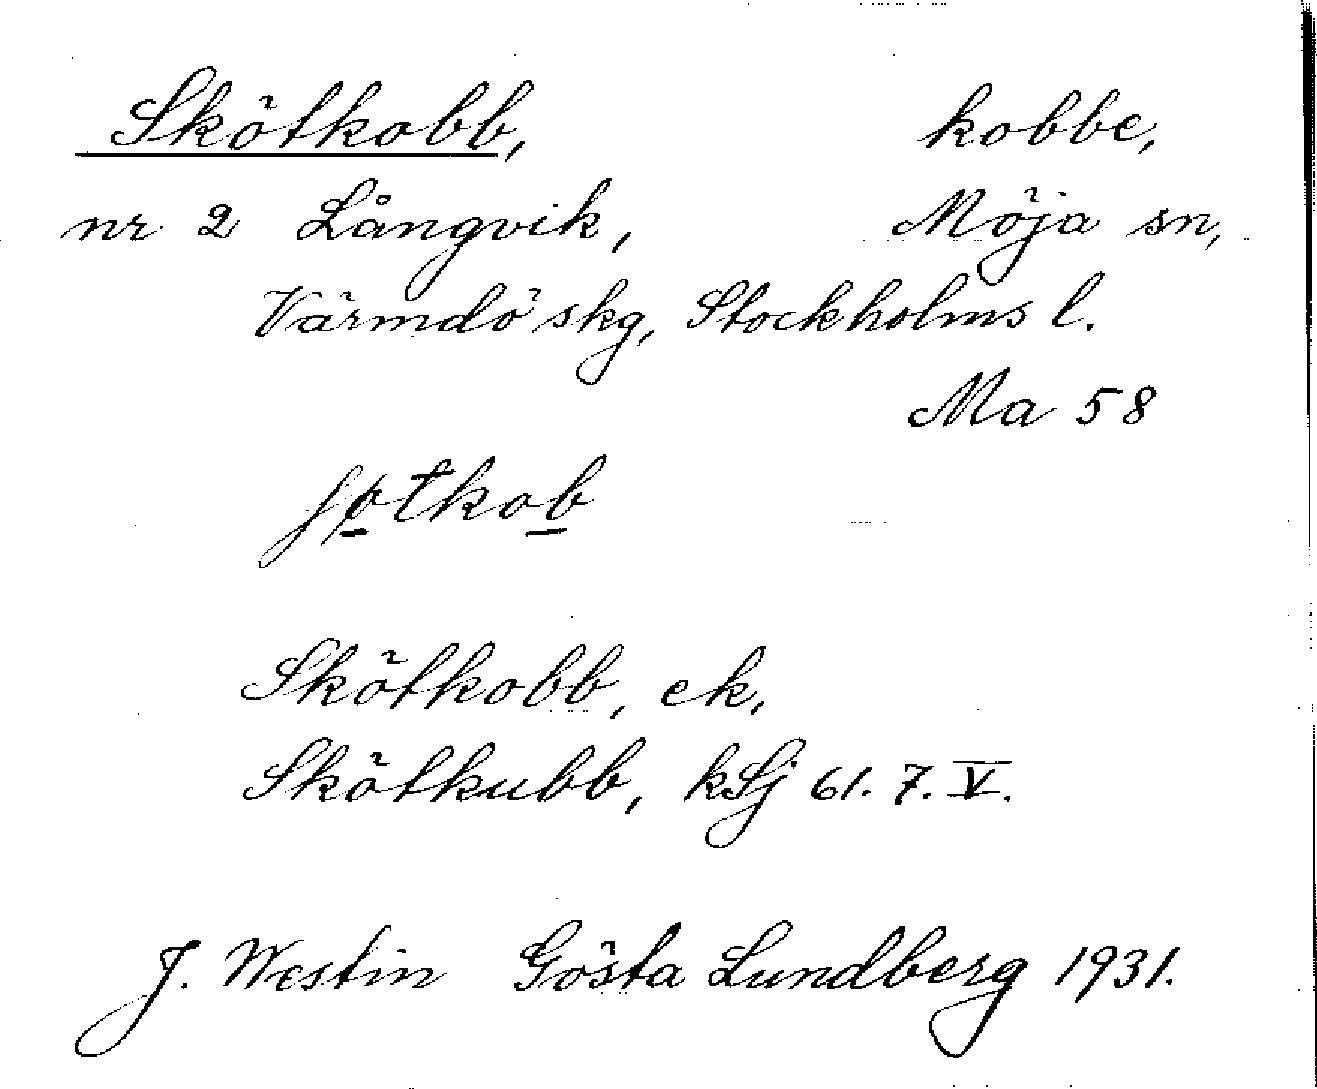 Skötkobb, kobbe,
nr 2 Långvik, Möja sn,
Värmdö skg, Stockholms l.
Ma 58
Skötkobb, ek,
Skötkubb, kSj 61. 7. V.
J. Westin Gösta Lundberg 1931.